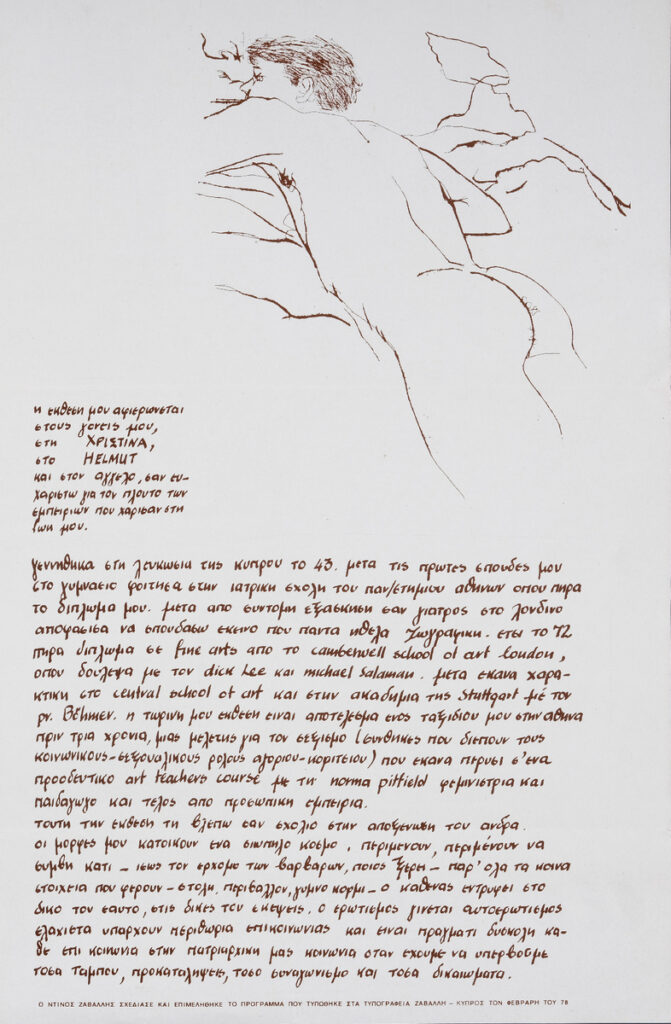 η εκθεση μου αφιερωνεται
στους γονεις μου,
στη ΧΡΙΣΤΙΝΑ,
στο HELMUT
και στον αγγελο, σαν ευ-
χαριστω για τον πλουτο των
εμπειριων που χαρισαν στη
ζωη μου.
γεννηθηκα στη λευκωσια της κυπρου το 43. μετα τις πρωτες σπουδες μου
στο γυμνασιο φοιτησα στην ιατρικη σχολη του παν/στημιου αθηνων οπου πηρα
το διπλωμα μου. μετα απο συντομη εξασκηση σαν γιατρος στο λονδινο
αποφασισα να σπουδασω εκεινο που παντα ηθελα ζωγραφικη. ετσι το 72
πηρα διπλωμα σε fine arts απο το camberwell school of art london,
οπου δουλεψα με τον dick Lee και michael salaman. μετα εκανα χαρα-
κτικη στο central school of art και στην ακαδημια της Stuttgart με τον
pr. Böhmer. η τωρινη μου εκθεση ειναι αποτελεσμα ενος ταξιδιου μου στην αθηνα
πριν τρια χρονια, μιας μελετης για τον σεξισμο (συνθηκες που διεπουν τους
κοινωνικους-σεξουαλικους ρολους αγοριου-κοριτσιου) που εκανα περυσι σ'ενα
προοδευτικο art teachers course με τη norma pitfield φεμινιστρια και
παιδαγωγο και τελος απο προσωπικη εμπειρια.
τουτη την εκθεση τη βλεπω σαν σχολιο στην αποξενωση του ανδρα.
οι μορφες μου κατοικουν ενα σιωπηλο κοσμο, περιμενουν, περιμένουν να
συμβη κατι – ισως τον ερχομο των βαρβαρων, ποιος ξερει – παρ' ολα τα κοινα
στοιχεια που φερουν – στολη, περιβαλλον, γυμνο κορμι – ο καθενας εντρυφει στο
δικο του εαυτο, στις δικες του σκεψεις. ο ερωτισμος γινεται αυτοερωτισμος
ελαχιστα υπαρχουν περιθωρια επικοινωνιας και ειναι πραγματι δυσκολη κα-
θε επι κοινωνια στην πατριαρχικη μας κοινωνια οταν εχουμε να υπερβουμε
τοσα ταμπου, προκαταληψεις, τοσο συναγωνισμο και τοσα δικαιωματα.
Ο ΝΤΙΝΟΣ ΖΑΒΑΛΛΗΣ ΣΧΕΔΙΑΣΕ ΚΑΙ ΕΠΙΜΕΛΗΘΗΚΕ ΤΟ ΠΡΟΓΡΑΜΜΑ ΠΟΥ ΤΥΠΩΘΗΚΕ ΣΤΑ ΤΥΠΟΓΡΑΦΕΙΑ ΖΑΒΑΛΛΗ – ΚΥΠΡΟΣ ΤΟΝ ΦΕΒΡΑΡΗ ΤΟΥ 78